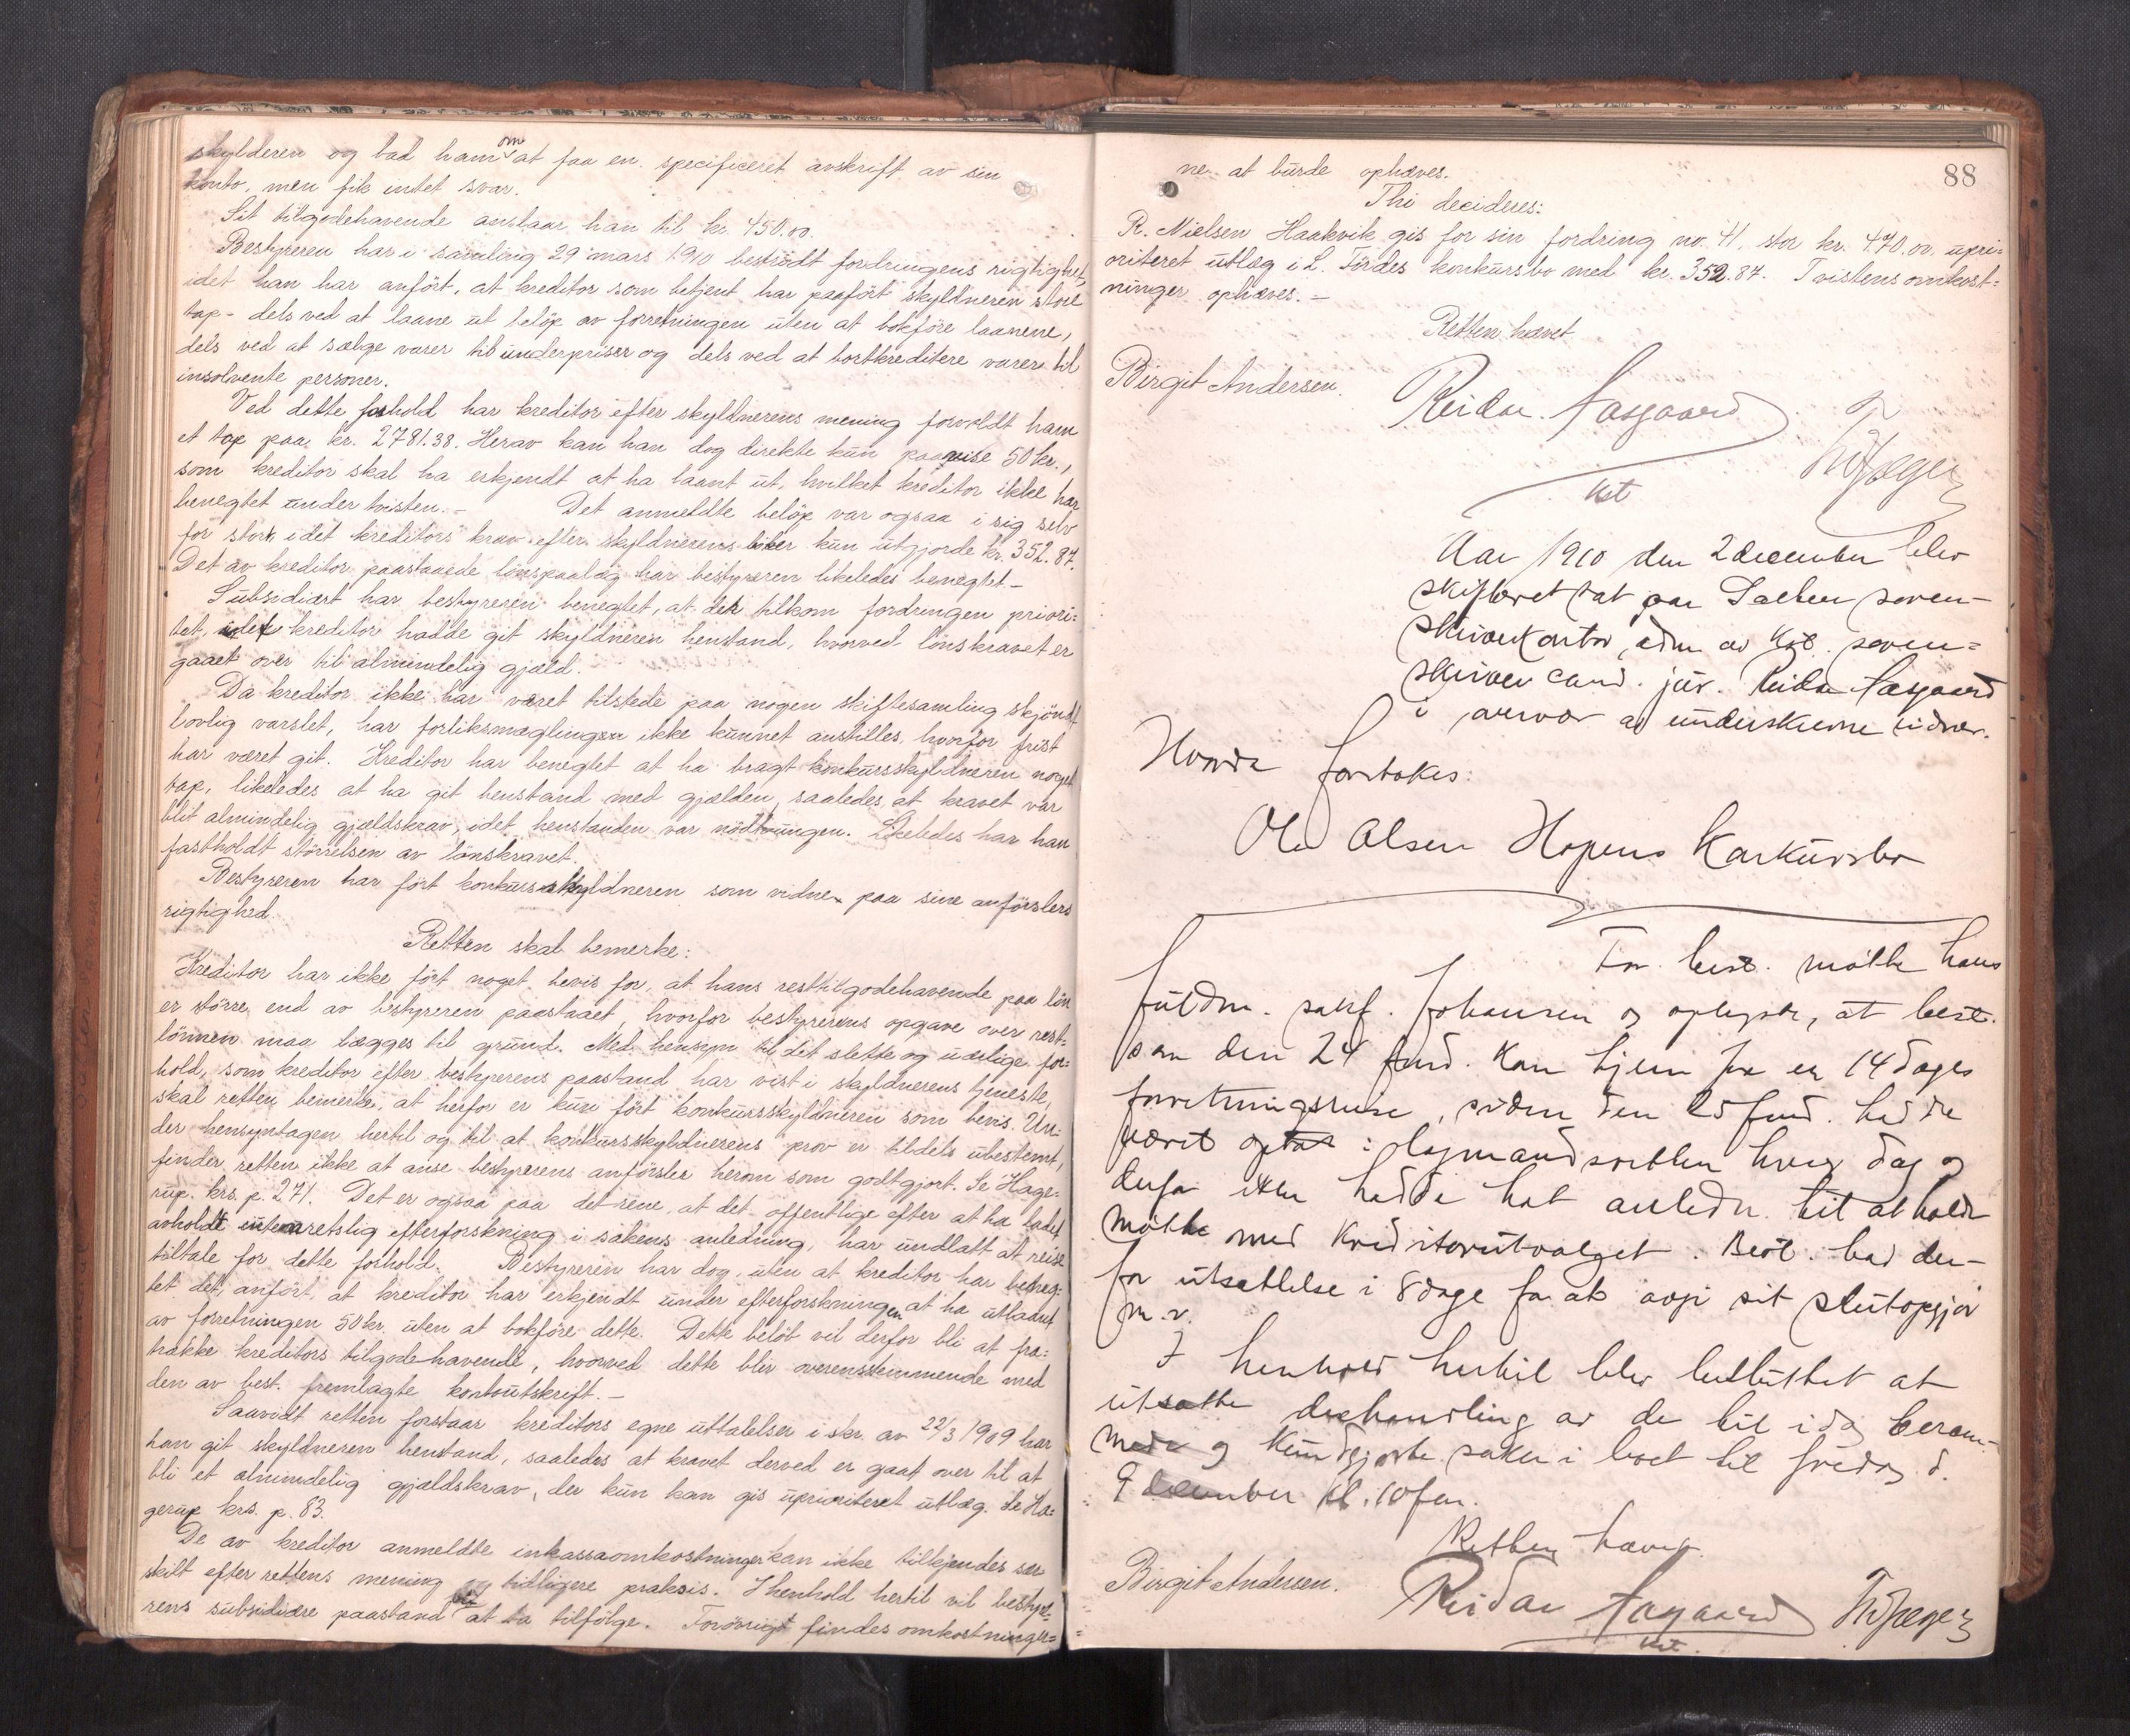 skylderen og bad ham om at faa en specificeret avskrift av sin
konto, men fik intet svar.
Sit tilgodehavende anslaar han til kr. 450.00.
Bestyreren har i samling 29 mars 1910 bestridt fordringens rigtighet,
idet han har anført, at kreditor som betjent har paaført skyldneren store
tap - dels ved at laane ut beløp av forretningen uten at bokføre laanene,
dels ved at sælge varer til underpriser og dels ved at bortkreditere varer til
insolvente personer.
Ved dette forhold har kreditor efter skyldnerens mening forvoldt ham
et tap paa kr. 2781.38. Herav kan han dog direkte kun paavise 50 kr.,
som kreditor skal ha erkjendt at ha laant ut, hvilket kreditor ikke har
benegtet under tvisten. - Det anmeldte beløp var ogsaa i sig selv
for stort idet kreditors krav efter skyldnerens bøker kun utgjorde kr. 352.87.
Det av kreditor paastaaede lønspaalæg har bestyreren likeledes benegtet -
Subsidiært har bestyreren benegtet, at der tilkom fordringen priori=
tet, idet kreditor hadde git skyldneren henstand, hvorved lønskravet er
gaaet over til almindelig gjæld.
Da kreditor ikke har været tilstede paa nogen skiftesamling skjøndt
lovlig varslet, har forliksmæglingen ikke kunnet anstilles, hvorfor frist
har været git. Kreditor har benegtet at ha bragt konkursskyldneren noget
tap, likeledes at ha git henstand med gjælden, saaledes at kravet var
blit almindelig gjældskrav, idet henstanden var nødtvungen. Likeledes har han
fastholdt størrelsen av lønskravet.
Bestyreren har ført konkursskyldneren som vidne paa sine anførslers
rigtighed.
Retten skal bemerke:
Kreditor har ikke ført noget bevis for, at hans resttilgodehavende paa løn
er større end av bestyreren paastaaet, hvorfor bestyrerens opgave over rest-
lønnen maa lægges til grund. Med hensyn til det slette og uærlige for=
hold, som kreditor efter bestyrerens paastand har vist i skyldnerens tjeneste,
skal retten bemerke, at herfor er kun ført konkursskyldneren som bevis. Un-
der hensyntagen hertil og til at konkursskyldnerens prov er tildels ubestemt,
finder retten ikke at anse bestyrerens anførsler herom som godtgjort. Se Hage-
rup. krs. p. 271. Det er ogsaa paa det rene, at det offentlige efter at ha ladet
avholdt utenretslig efterforskning i sakens anledning, har undlatt at reise
tiltale for dette forhold. Bestyreren har dog, uten at kreditor har beneg-
tet det, anført at kreditor har erkjendt under efterforskningen at ha utlaant
av forretningen 50 kr. uten at bokføre dette. Dette beløb vil derfor bli at fra=
trække kreditors tilgodehavende, hvorved dette blir overensstemmende med
den av best. fremlagte kontoutskrift. -
Saavidt retten forstaar kreditors egne uttalelser i skr. av 22/3 1909 har
han git skyldneren henstand, saaledes at kravet derved er gaat over til at
bli et almindelig gjældskrav, der kun kan gis uprioriteret utlæg. Se Ha=
gerup krs. p. 83.
De av kreditor anmeldte inkassoomkostninger kan ikke tilkjendes sær
skilt efter rettens mening og tidligere praksis. I henhold hertil vil bestyre-
rens subsidiære paastand bli at ta tilfølge. Forøvrigt findes omkostninger=
88
ne at burde ophæves.
Thi decideres:
R. Nielsen Haakvik gis for sin fordring no. 41, stor kr. 470.00, upri=
oriteret utlæg i L. Førdes konkursbo med kr. 352.87. Tvistens omkost=
ninger ophæves. -
Retten hævet
Birgit Andersen. Reidar Aasgaard
kst
Aar 1910 den 2 december blev
skifteret sat paa Salten soren-
skriverkontor, adm av kst. soren=
skriver cand. jur. Reidar Aasgaard
i overvær av underskrevne vidner.
Hvorda foretokes:
Ole Olsen Hopens Konkursbo
For best. møtte hans
fuldm. sakf. Johansen og oplyste, at best.
som den 24 f.md. kom hjem fra en 14 dages
forretningsreise, siden den 25 f.md. hadde
været optat i lagmandsretten hver dag og
derfor ikke hadde hat anledn. til at holde
møtte med Kreditorutvalget. Best. bad der-
for utsættelse i 8 dage for at avgi sit slutopgjør
m.v.
I henhold hertil blev besluttet at
utsætte behandling av de til idag beram-
mede og kundgjorte saker i boet til fredag d.
9 december kl. 10 fm.
Retten hævet.
Birgit Andersen. Reidar Aasgaard
kst.